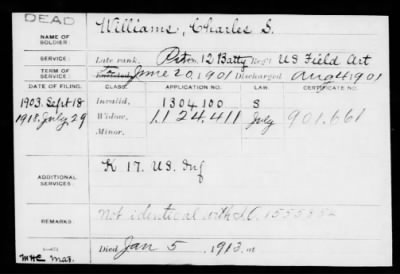 DEAD
NAME OF SOLDIER: Williams, Charles S.
SERVICE: Late rank, Pvt. 12 Batty Reg't US Field Art
TERM OF SERVICE: Enlisted June 20, 1901 Discharged Aug 4 1901
DATE OF FILING. CLASS. APPLICATION NO. LAW. CERTIFICATE NO.
1903. Sept 18 Invalid, 1304100 S
1918. July, 29 Widow, 1124.411 July 901.661
Minor.
ADDITIONAL SERVICES: K 17. US. Inf
REMARKS Not identical with S.O.
Died Jan 5, 1913, at